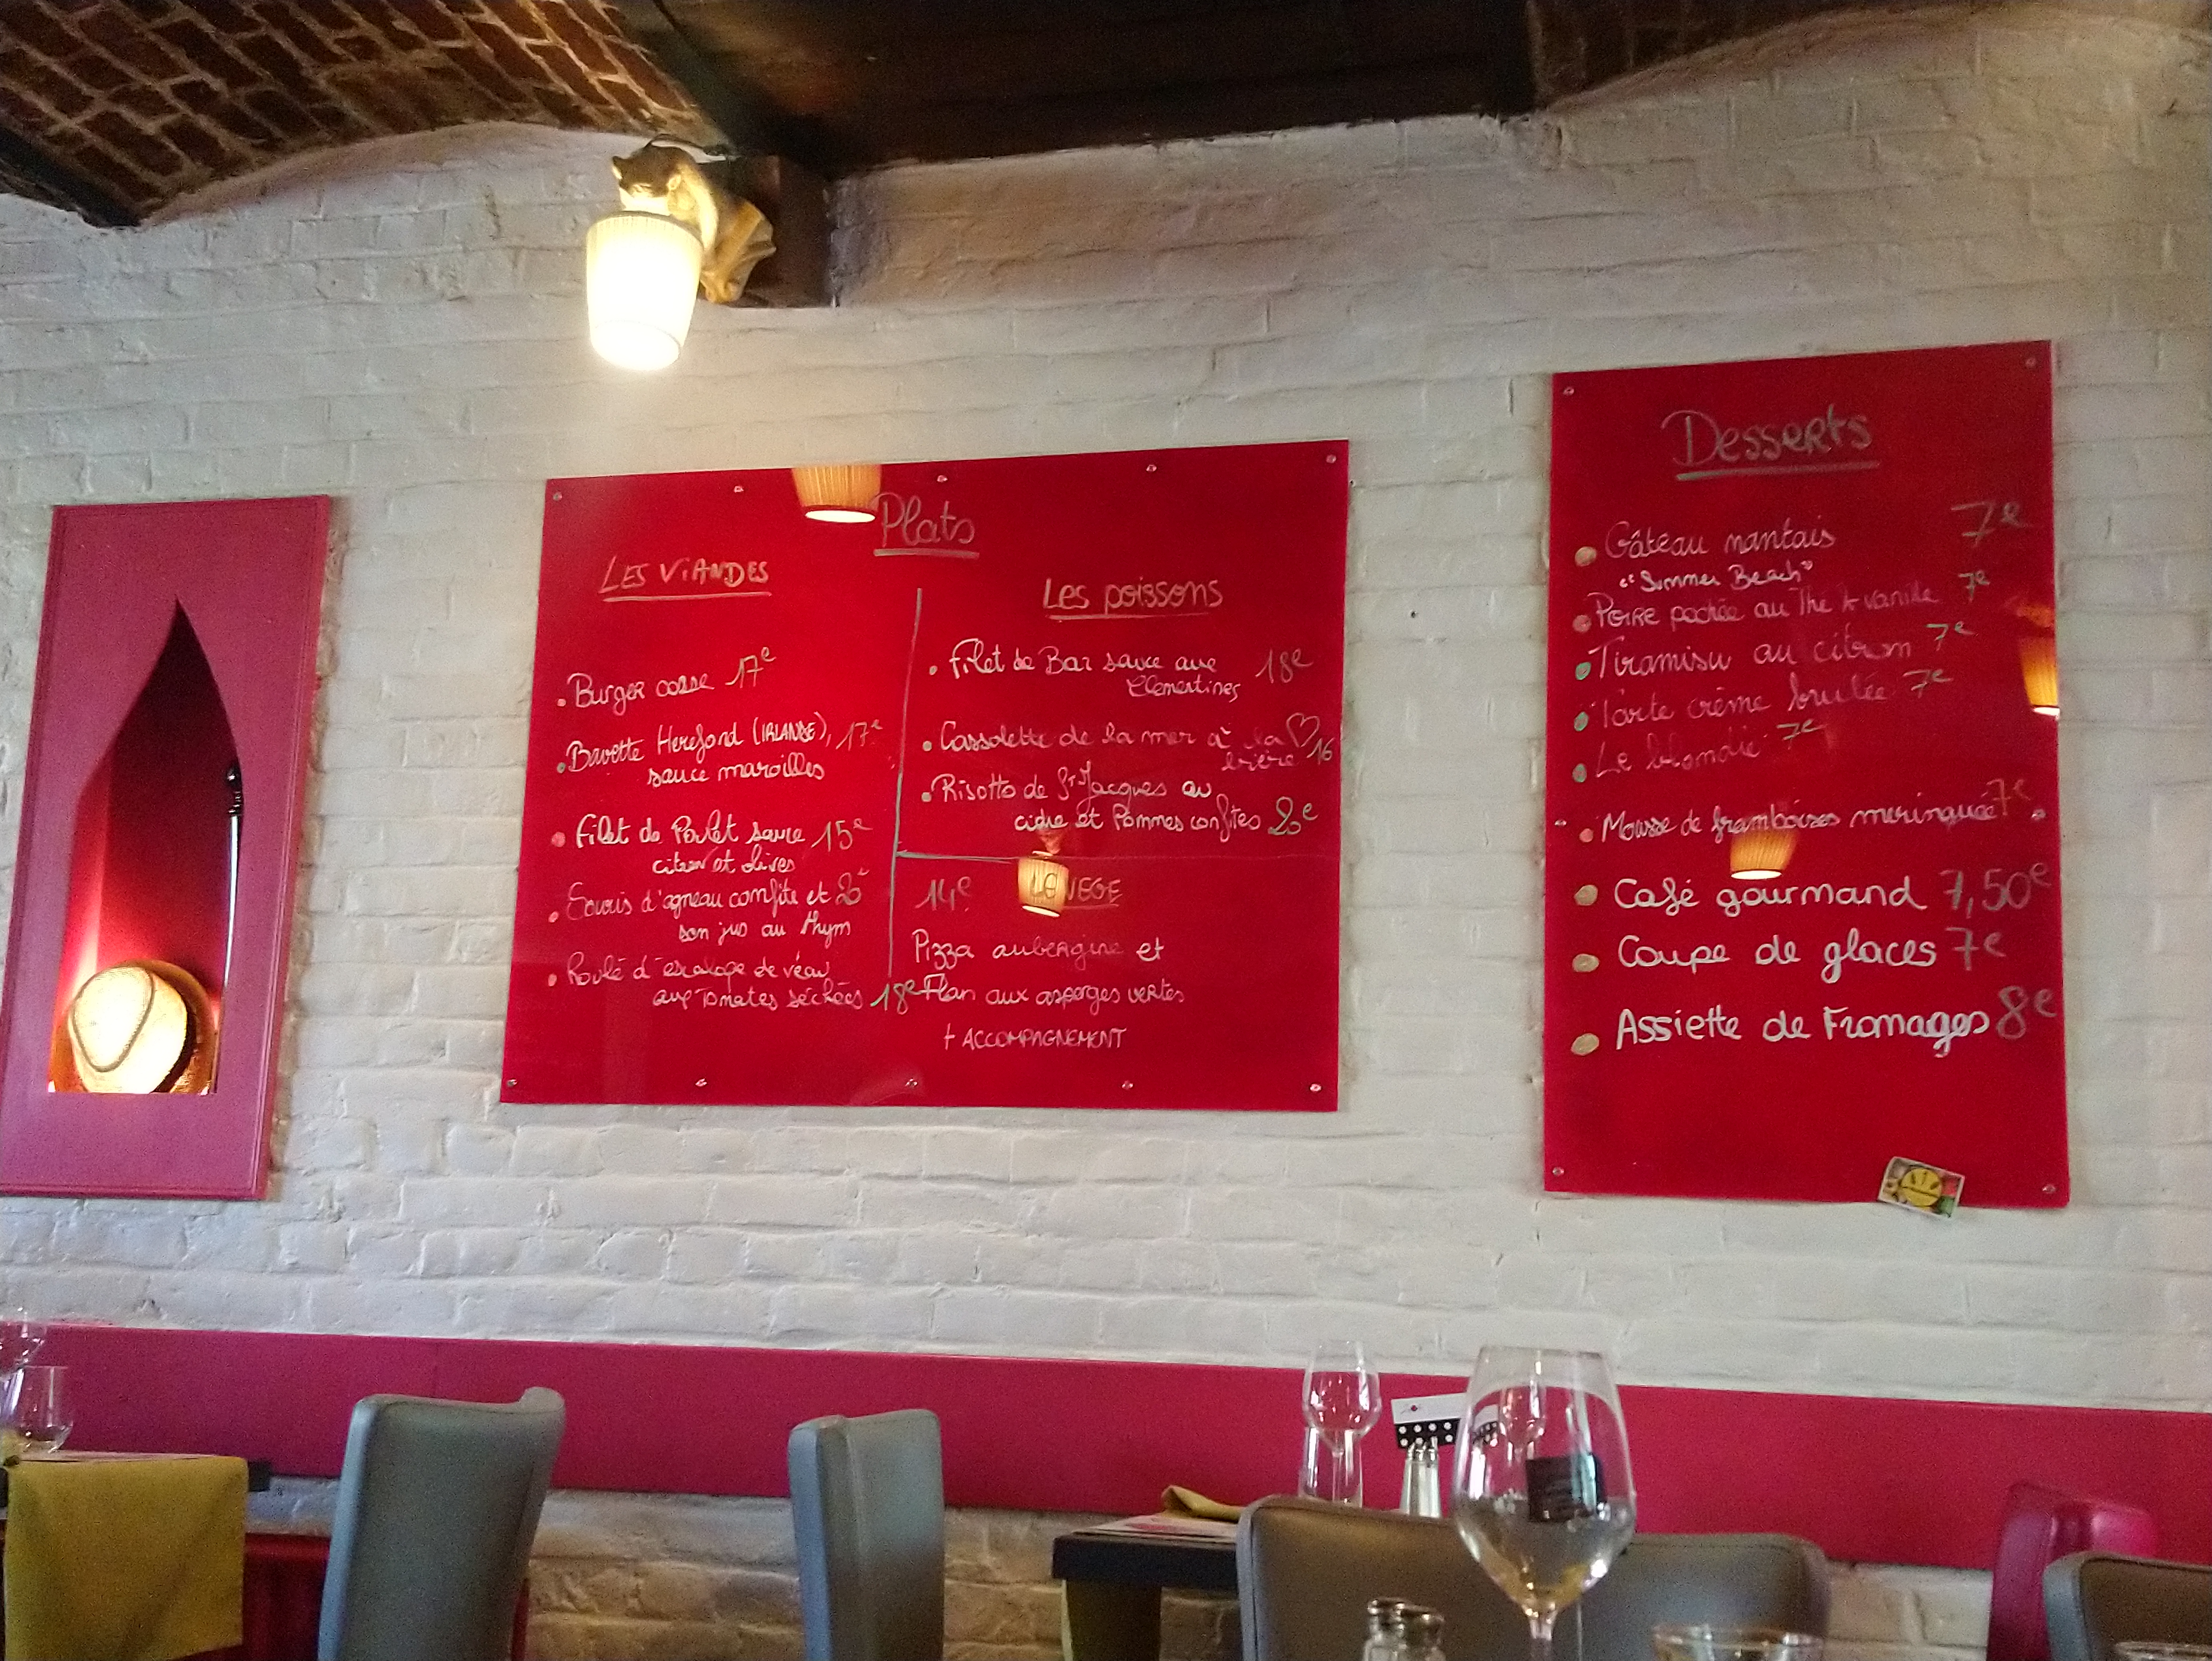 Plats
LES VIANDES
• Burger corse 17e
• Bavette Hereford (IRLANDE), 17e
sauce maroilles
• Filet de Poulet sauce 15e
citron et olives
• Souris d'agneau confite et 20e
son jus au thym
• Roulé d'escalope de veau
aux Tomates séchées 18e
Les poissons
• Filet de Bar sauce aux 18e
Clémentines
• Cassolette de la mer à la ♡
bière 16
• Risotto de St Jacques au
cidre et Pommes confites 20e
14e VEGE
Pizza aubergine et
Flan aux asperges vertes
+ ACCOMPAGNEMENT
Desserts
• Gâteau nantais 7e
"Summer Beach"
• Poire pochée au Thé & vanille 7e
• Tiramisu au citron 7e
• Tarte crème brulée 7e
• Le blondie 7e
• Mousse de framboises meringuée 7e
• Café gourmand 7,50e
• Coupe de glaces 7e
• Assiette de Fromages 8e